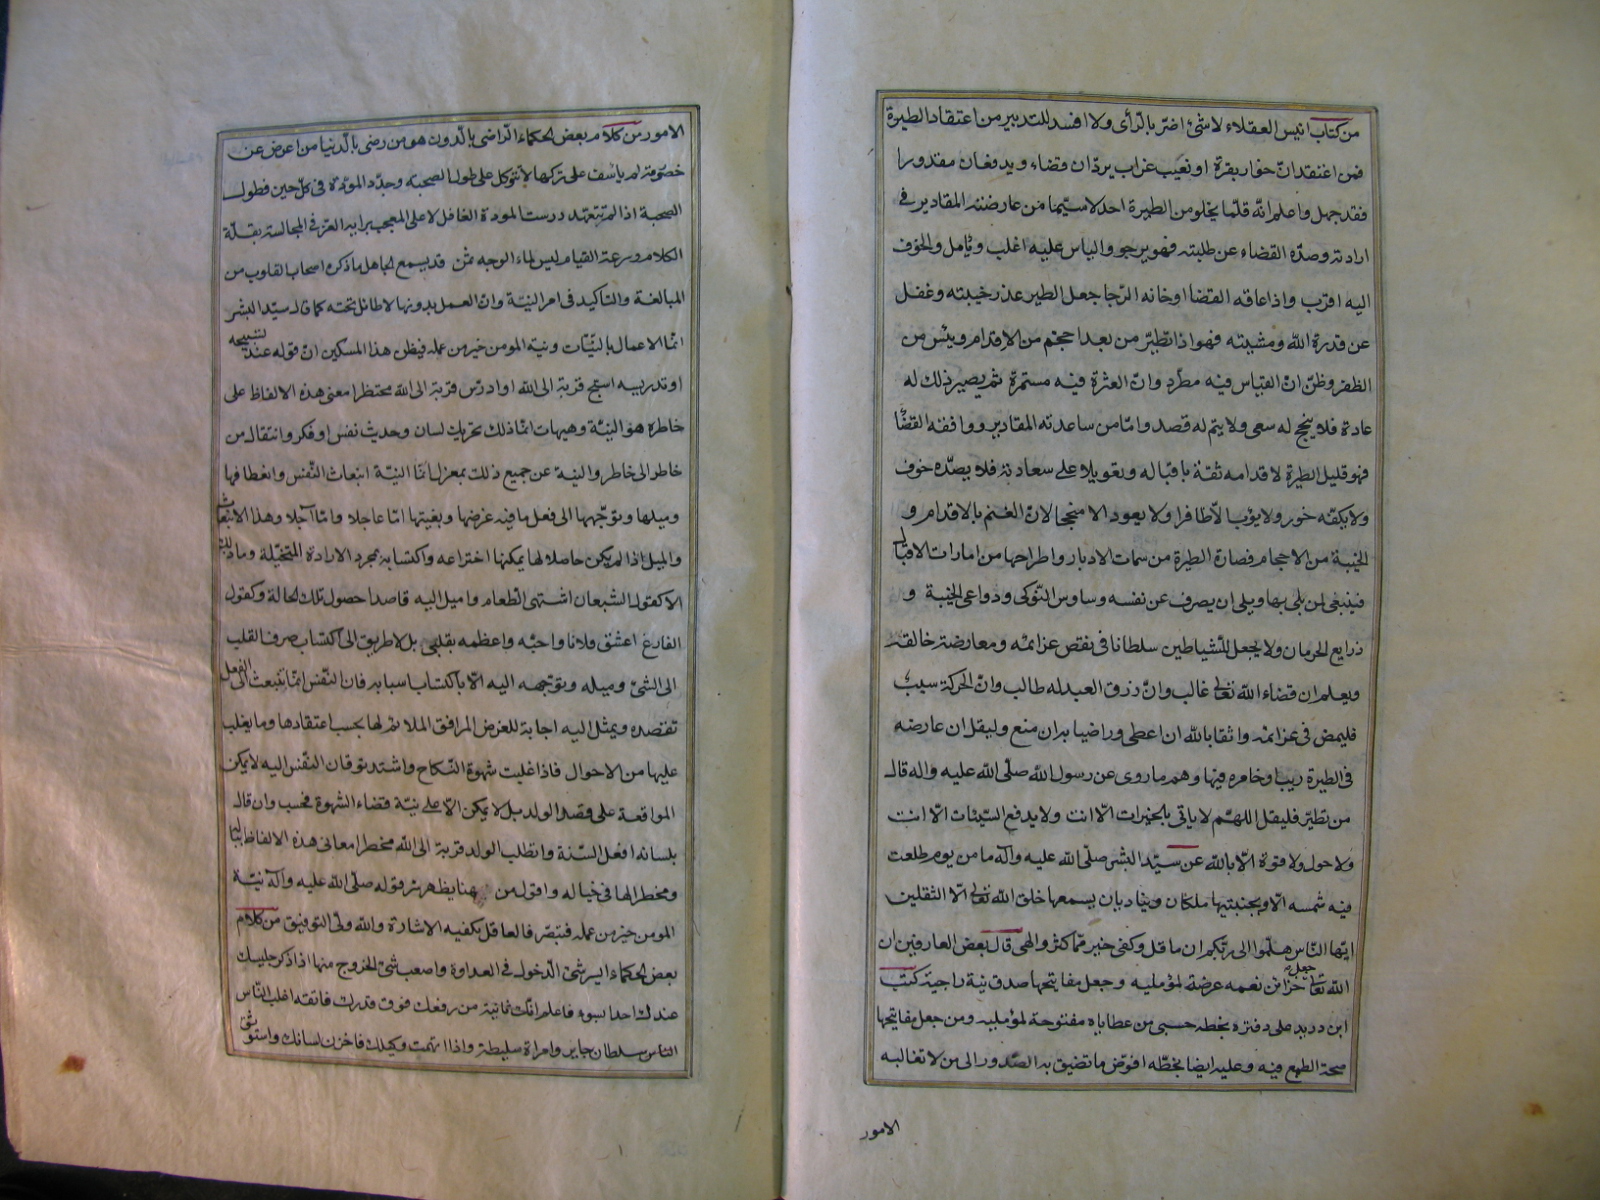 من كتاب انيس العقلاء لا شئ اضر بالرأى ولا افسد للتدبير من اعتقاد الطيرة
فمن اعتقد انّ خوار بقرة او نعيب غراب يردّان قضاء ويدفعان مقدورا
فقد جهل واعلم انّه قلّما يخلو من الطيرة احد لا سيّما من عارضته المقادير فى
ارادته وصدّه القضاء عن طلبته فهو يرجو والياس عليه اغلب ويأمل والخوف
اليه اقرب واذا عاقه القضا او خانه الرجا جعل الطير عذر خيبته وغفل
عن قدرة الله ومشيته فهو اذا تطيّر من بعد احجم من الاقدام ويئس من
الظفر وظنّ انّ القياس فيه مطّرد وانّ العثرة فيه مستمرة ثم يصير ذلك له
عادة فلا ينجح له سعى ولا يتم له قصد وامّا من ساعدته المقادير ووافقه القضا
فهو قليل الطيرة لاقدامه ثقة باقباله وتعويلا على سعادته فلا يصدّه خوف
ولا يكفّه خور ولا يؤب الا ظافرا ولا يعود الا منجحا لانّ الغنم بالاقدام و
الخيبة من الاحجام فصارة الطيرة من سمات الادبار واطراحها من امارات الاقبال
فينبغى لمن بلى بها وبلى ان يصرف عن نفسه وساوس النّوكى ودواعى الخيبة و
ذرايع الحرمان ولا يجعل للشياطين سلطانا فى نقص عزائمه ومعارضة خالقه
ويعلم ان قضاء الله تعالى غالب وانّ رزق العبد له طالب وانّ الحركة سبب
فليمض فى عزائمه واثقا بالله ان اعطى وراضيا به ان منع وليقل ان عارضه
فى الطيرة ريب او خامره فيها وهم ما روى عن رسول الله صلّى الله عليه واله قال
من تطيّر فليقل اللهم لا ياتى بالخيرات الّا انت ولا يدفع السّيئات الّا انت
ولا حول ولا قوة الّا بالله عن سيّد البشر صلّى الله عليه وآله ما من يوم طلعت
فيه شمسه الّا وبجنبتيها ملكان يناديان يسمعها خلق الله تعالى الّا الثقلين
ايّها النّاس هلمّوا الى ربّكم ان ما قل وكفى خير ممّا كثر والهى قال بعض العارفين ان
الله تعالى جعل خزائن نعمه عرضة لمؤمليه وجعل مفاتيحها صدق نيّة راجية كتب
ابن دريد على دفتره بخطه حسبى من عطاياه مفتوحة لمؤمليه ومن جعل مفاتيحها
صحة الطمع فيه وعليه ايضا بخطّه افوّض ما تضيق به الصّدور الى من لا تغالبه
الامور
الامور من كلام بعض الحكماء الرّاضى بالدّون هو من رضى بالدّنيا من اعرض عن
خصومة لم ياسف على تركها لا تتّوكل على طول الصحبة وجدّد المودّة فى كلّ حين فطول
الصحبة اذا لم تتعهّد درست المودة العاقل لا على المعجب برايه العزّ فى المجالسة بقلّة
الكلام وسرعة القيام ليس لماء الوجه ثمن قد يسمع الجاهل ما ذكره اصحاب القلوب من
المبالغة والتاكيد فى امر النيّة وانّ العمل بدونها لا طائل تحته كما قال سيّد البشر
انّما الاعمال بالنيّات ونية المومن خير من عمله فيظن هذا المسكين انّ قوله عند تسبيحه
او تدريسه اسبح قربة الى الله او ادرّس قربة الى الله محتظرا معنى هذه الالفاظ على
خاطره هو النيّة وهيهات انّما ذلك تحريك لسان وحديث نفس او فكر وانتقال من
خاطر الى خاطر والنية عن جميع ذلك بمعزل انّما النيّة انبعاث النّفس وانعطافها
وميلها وتوجّهها الى فعل ما فيه غرضها وبغيتها امّا عاجلا وامّا آجلا وهذا الانبعاث
والميل اذا لم يكن حاصلا لها يمكنها اختراعه واكتسابه بمجرد الارادة المتخيّلة وما ذلك
الا كقول الشبعان اشتهى الطعام واميل اليه قاصدا حصول تلك الحالة وكقول
الفارغ اعشق فلانا واحبّه واعظمه بقلبى بل لا طريق الى اكتساب صرف القلب
الى الشئ وميله وتوجّهه اليه الّا باكتساب اسبابه فان النّفس انّما تنبعث الى الفعل
تقتصده ويمثل اليه اجابة للغرض المرافق الملائم لها بحسب اعتقادها وما يغلب
عليها من الاحوال فاذا غلبت شهوة النّكاح واشتد توقان النّفس اليه لا يمكن
المواقعة على قصد الولد بل لا يمكن الّا على نيّة قضاء الشهوة فحسب وان قال
بلسانه افعل السّنة واطلب الولد قربة الى الله مخطرا معانى هذه الالفاظ بباله
ومخطرا لها فى خياله واقول من هنا يظهر سر قوله صلّى الله عليه وآله نيّة
المومن خير من عمله فتبصّر فالعاقل تكفيه الاشارة والله ولىّ التوفيق من كلام
بعض الحكماء ايسر شئ الدّخول فى العداوة واصعب شئ الخروج منها اذا ذكر جليسك
عندك احدا بسوء فاعلم انّك ثانيه من رفعك فوق قدرك فاتقه اغلب النّاس
النّاس سلطان جاير وامراة سليطة واذا اتهمت وكيلك فاخزن لسانك واستوثق